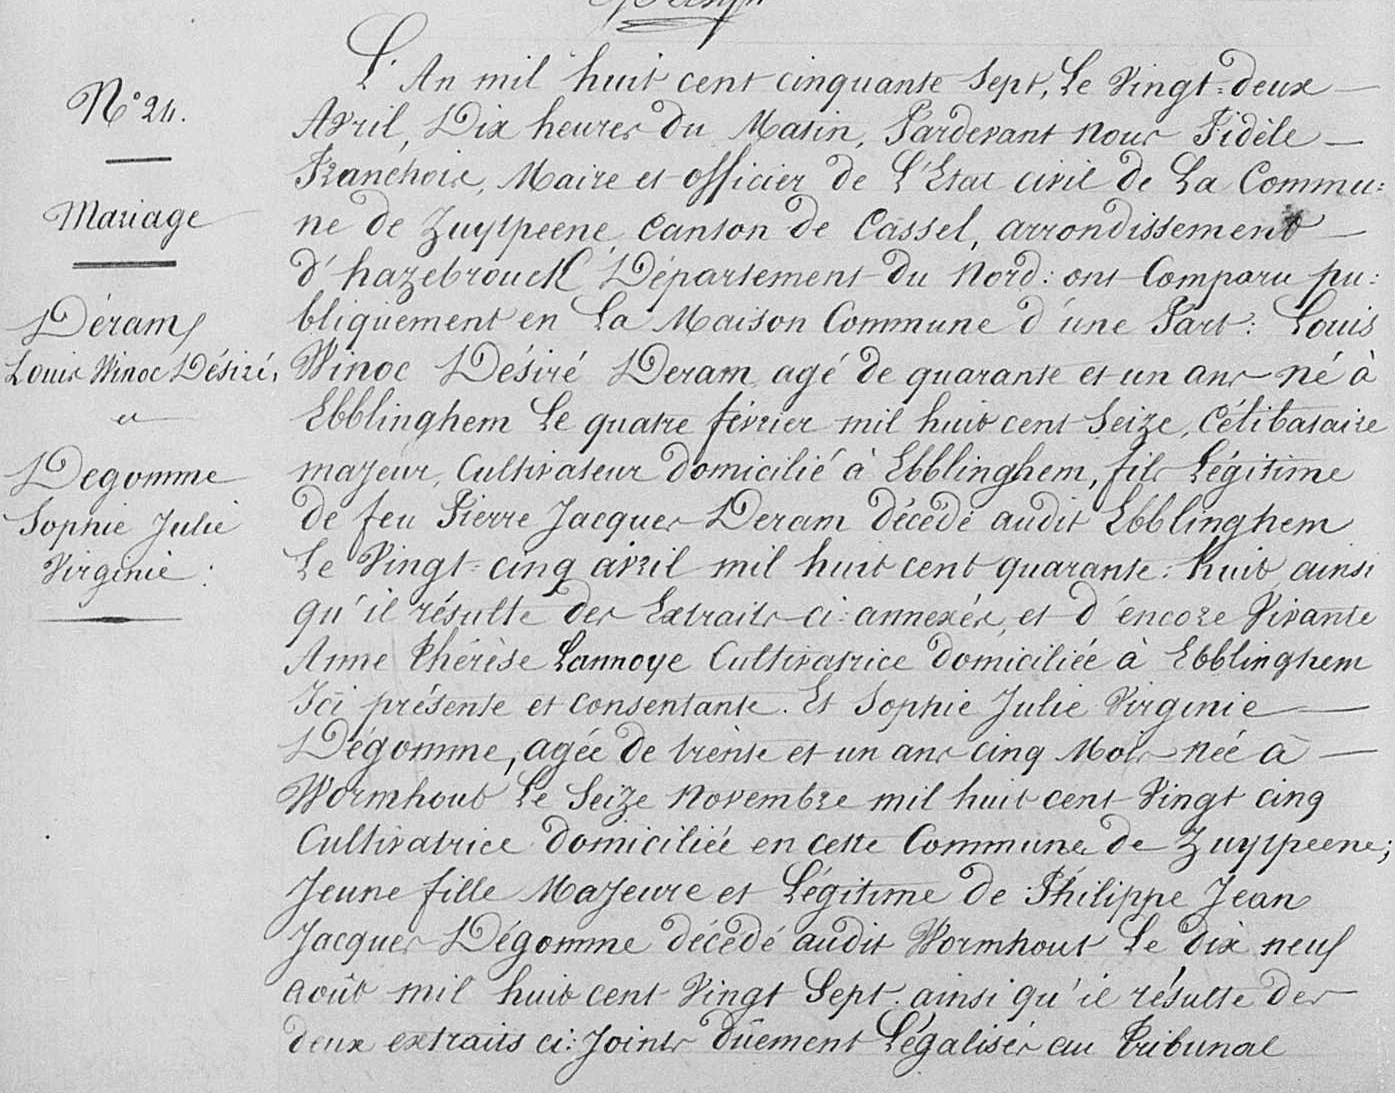 N° 24.
Mariage
Déram
Louis Winoc Désiré,
et
Degomme
Sophie Julie
Virginie :
L'An mil huit cent cinquante Sept, Le Vingt=deux —
Avril, Dix heures du Matin, Pardevant nous Fidèle —
Franchois, Maire et officier de L'Etat civil de La Commu=
ne de Zuytpeene, Canton de Cassel, arrondissement —
d'hazebrouck Département du Nord : ont Comparu pu=
bliquement en La Maison Commune d'une Part : Louis
Winoc Désiré Deram agé de quarante et un ans né à
Ebblinghem Le quatre février mil huit cent Seize, Célibataire
majeur, Cultivateur domicilié à Ebblinghem, fils Légitime
de feu Pierre Jacques Deram décédé audit Ebblinghem
Le Vingt=cinq avril mil huit cent quarante=huit ainsi
qu'il résulte des Extraits ci=annexés, et d'encore Vivante
Anne Thérèse Lannoye Cultivatrice domiciliée à Ebblinghem
Ici présente et Consentante. Et Sophie Julie Virginie —
Dégomme, agée de trente et un ans cinq Mois née à —
Wormhout Le Seize Novembre mil huit cent Vingt cinq
Cultivatrice domiciliée en cette Commune de Zuytpeene ;
Jeune fille Majeure et Légitime de Philippe Jean
Jacques Dégomme décédé audit Wormhout Le dix neuf
août mil huit cent Vingt Sept. ainsi qu'il résulte des
deux extraits ci=Joints dûement Légalisés au Tribunal